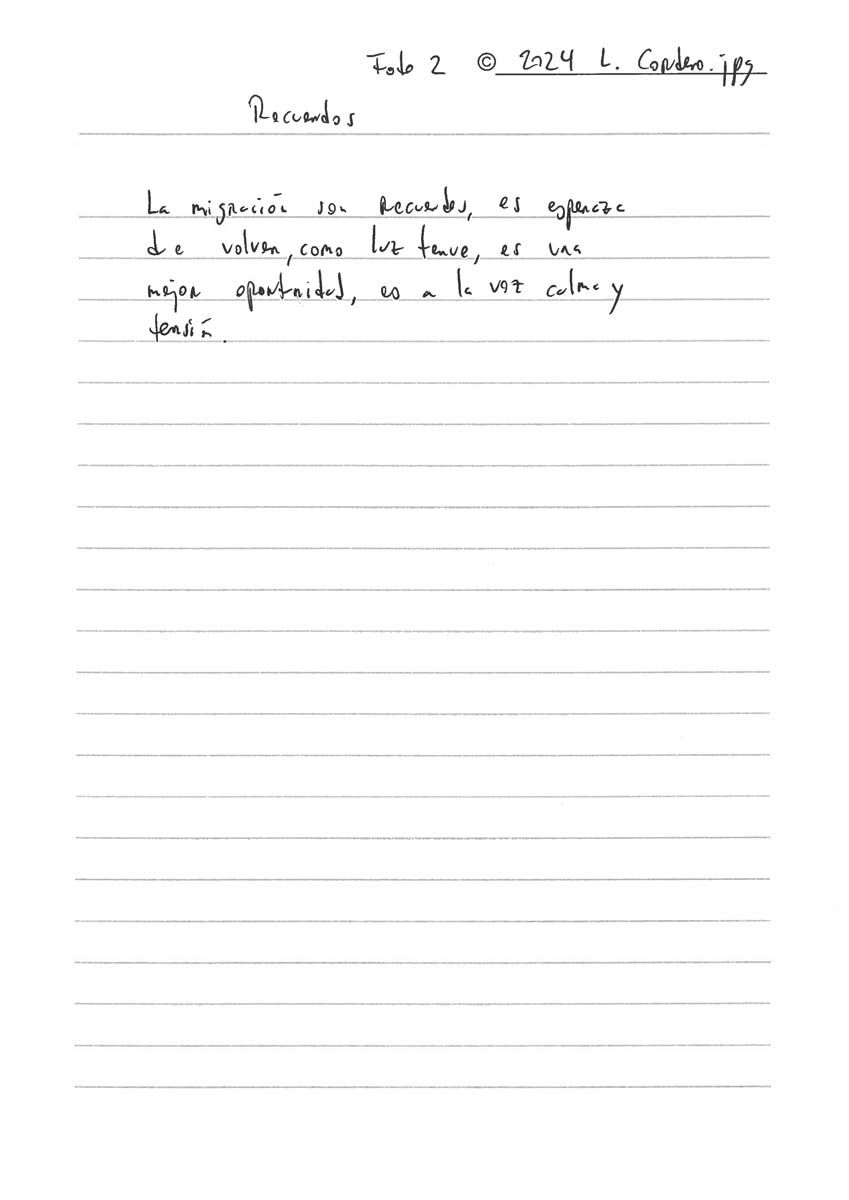 Foto 2 © 2024 L. Cordero.jpg
Recuerdos
La migración son Recuerdos, es esperaza
de volver, como luz tenue, es una
mejor oportnidad, es a la vez calma y
tensión.